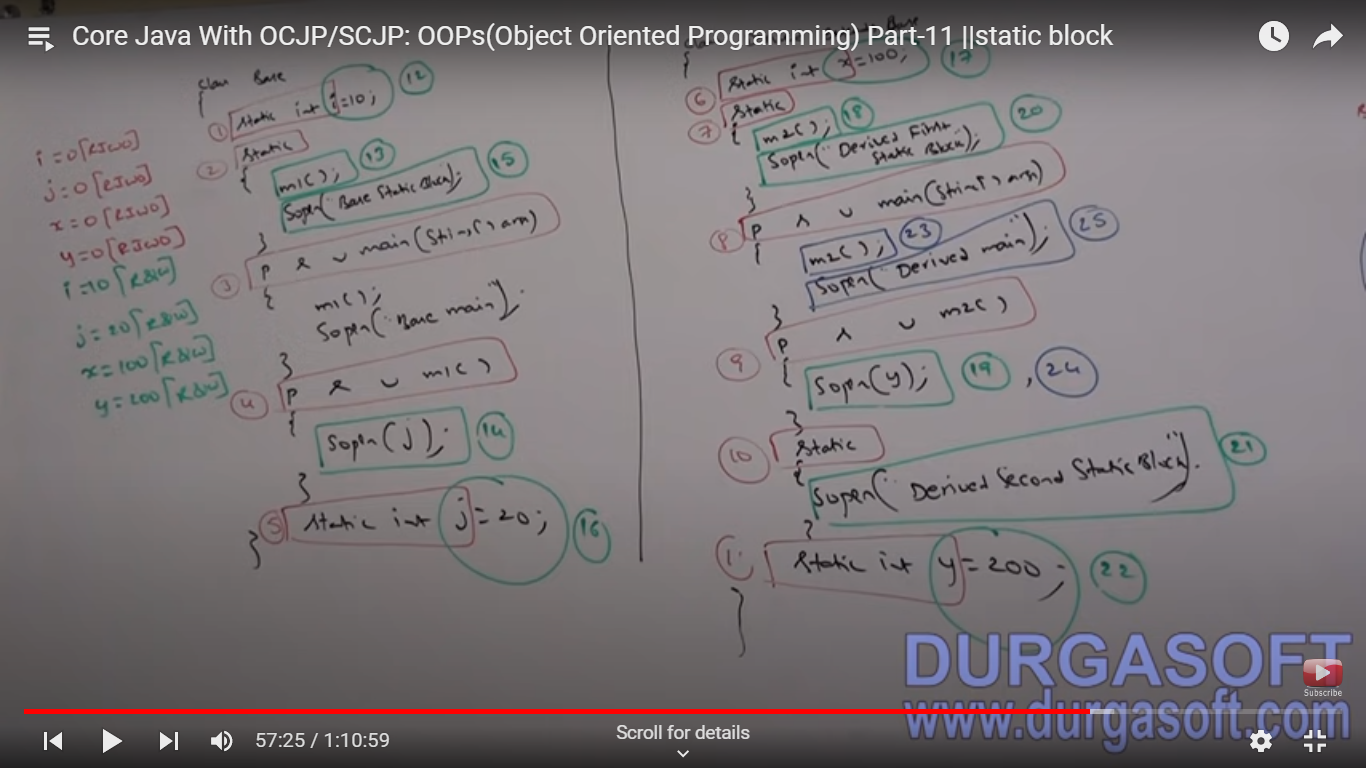 Core Java With OCJP/SCJP: OOPs(Object Oriented Programming) Part-11 ||static block
class Base
{
① static int i=10; ⑫
② static
{
m1(); ⑬
Sopln("Base Static Block"); ⑮
}
③ p s v main(String[] args)
{
m1();
Sopln("Base main");
}
④ p s v m1()
{
Sopln(j); ⑭
}
⑤ static int j=20; ⑯
}
i=0[RIWO]
j=0[RIWO]
x=0[RIWO]
y=0[RIWO]
i=10[R&W]
j=20[R&W]
x=100[R&W]
y=200[R&W]
Base
{
⑥ static int x=100; ⑰
⑦ static
{ m2(); ⑱
Sopln("Derived First
Static Block"); ⑳
}
⑧ p s v main(String[] args)
{
m2(); ㉓
Sopln("Derived main"); ㉕
}
⑨ p s v m2()
{
Sopln(y); ⑲, ㉔
}
⑩ static
{
Sopln("Derived Second Static Block"); ㉑
}
static int y=200; ㉒
}
DURGASOFT
www.durgasoft.com
Subscribe
57:25 / 1:10:59
Scroll for details